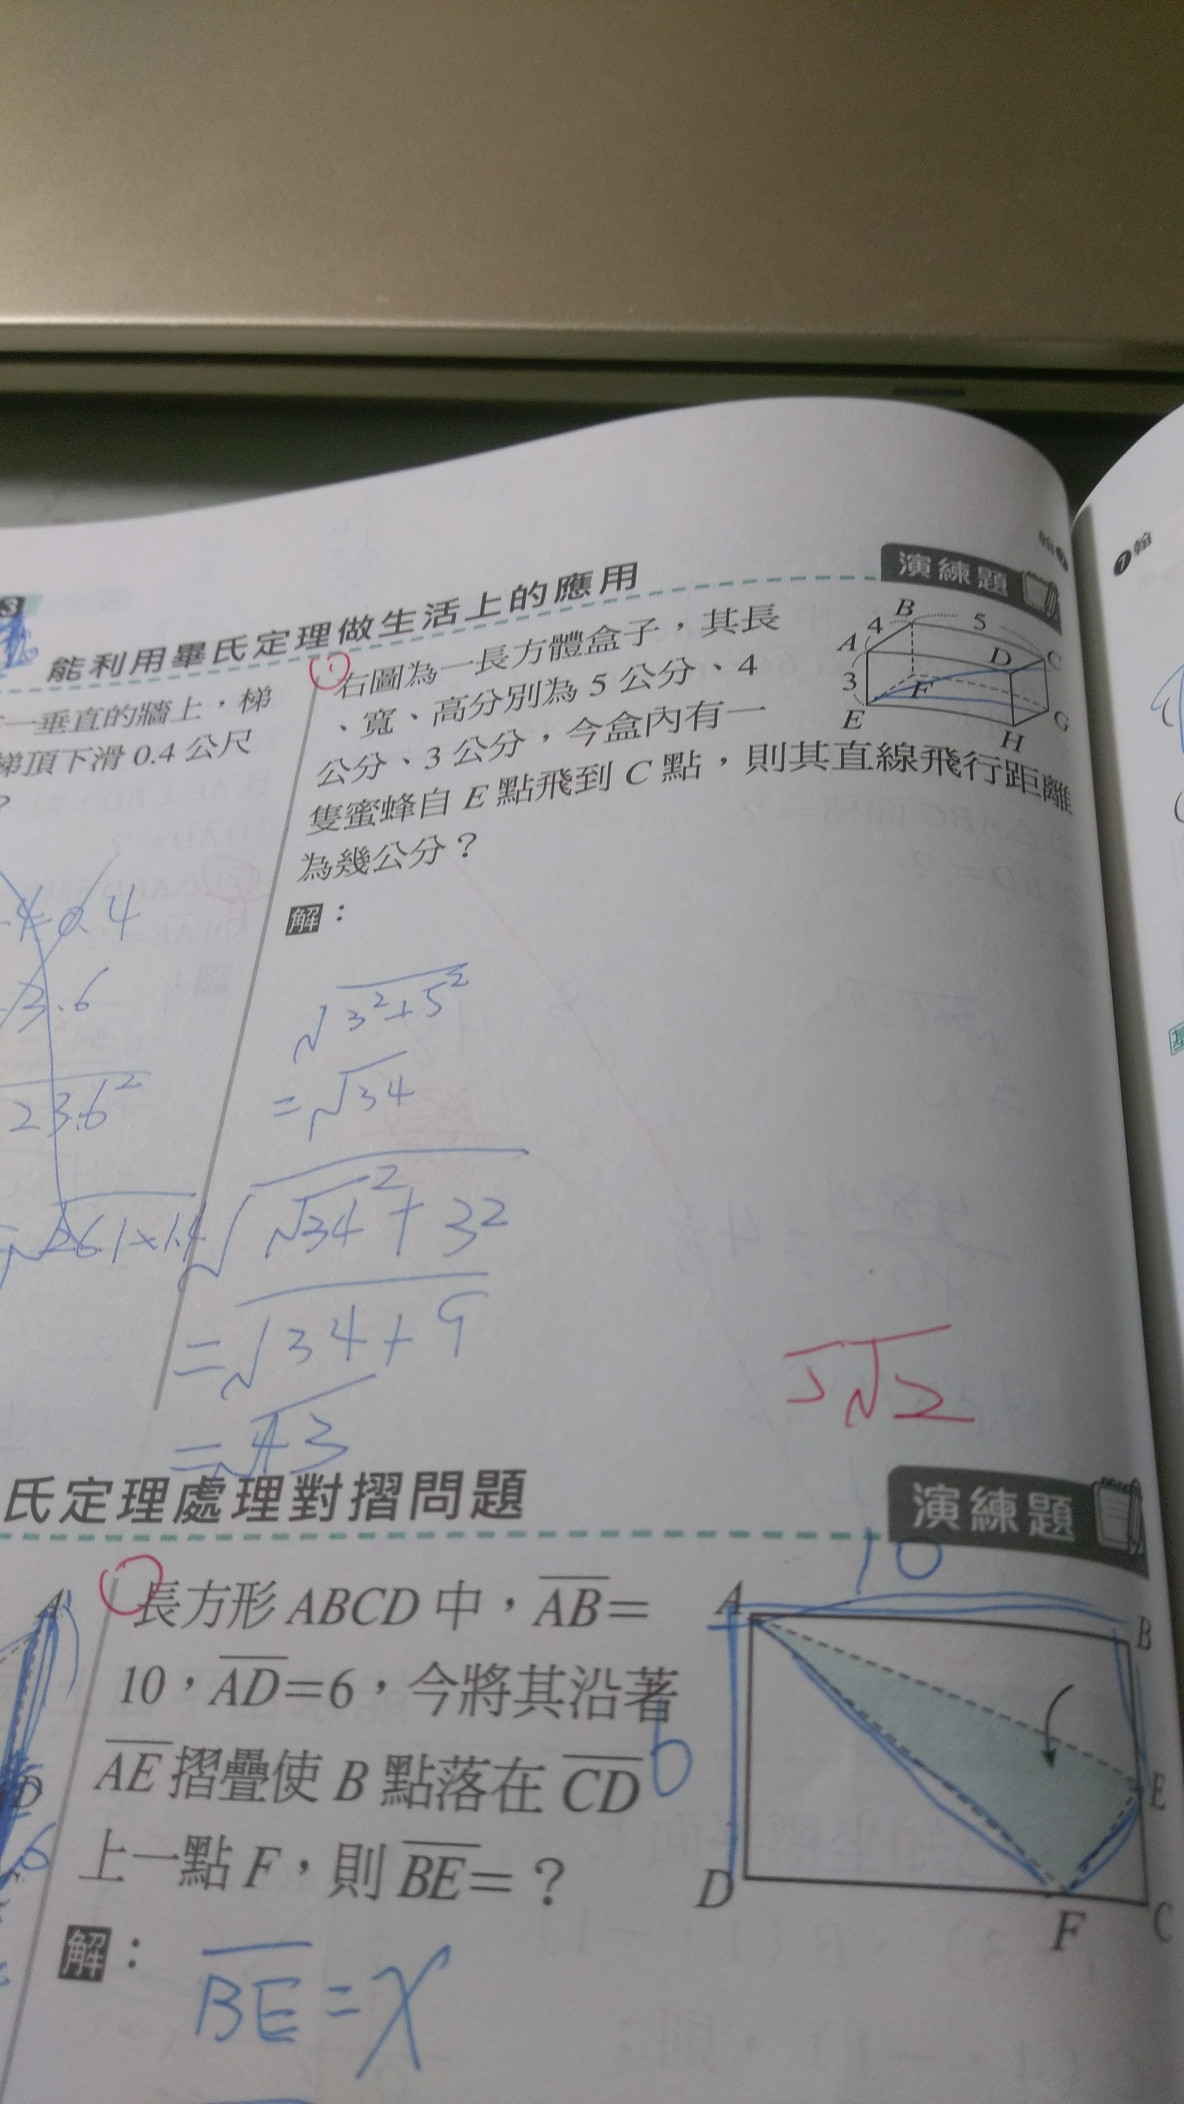 能利用畢氏定理做生活上的應用
演練題
一垂直的牆上，梯
梯頂下滑 0.4 公尺
?
右圖為一長方體盒子，其長
、寬、高分別為 5 公分、4
公分、3 公分，今盒內有一
隻蜜蜂自 E 點飛到 C 點，則其直線飛行距離
為幾公分？
B
4
5
A
D
C
3
F
E
G
H
解：
√3²+5²
=√34
√√34²+3²
=√34+9
=√43
5√2
氏定理處理對摺問題
演練題
長方形 ABCD 中，AB=
10，AD=6，今將其沿著
AE 摺疊使 B 點落在 CD
上一點 F，則 BE=？
10
A
B
6
E
D
F
C
解：
BE=x